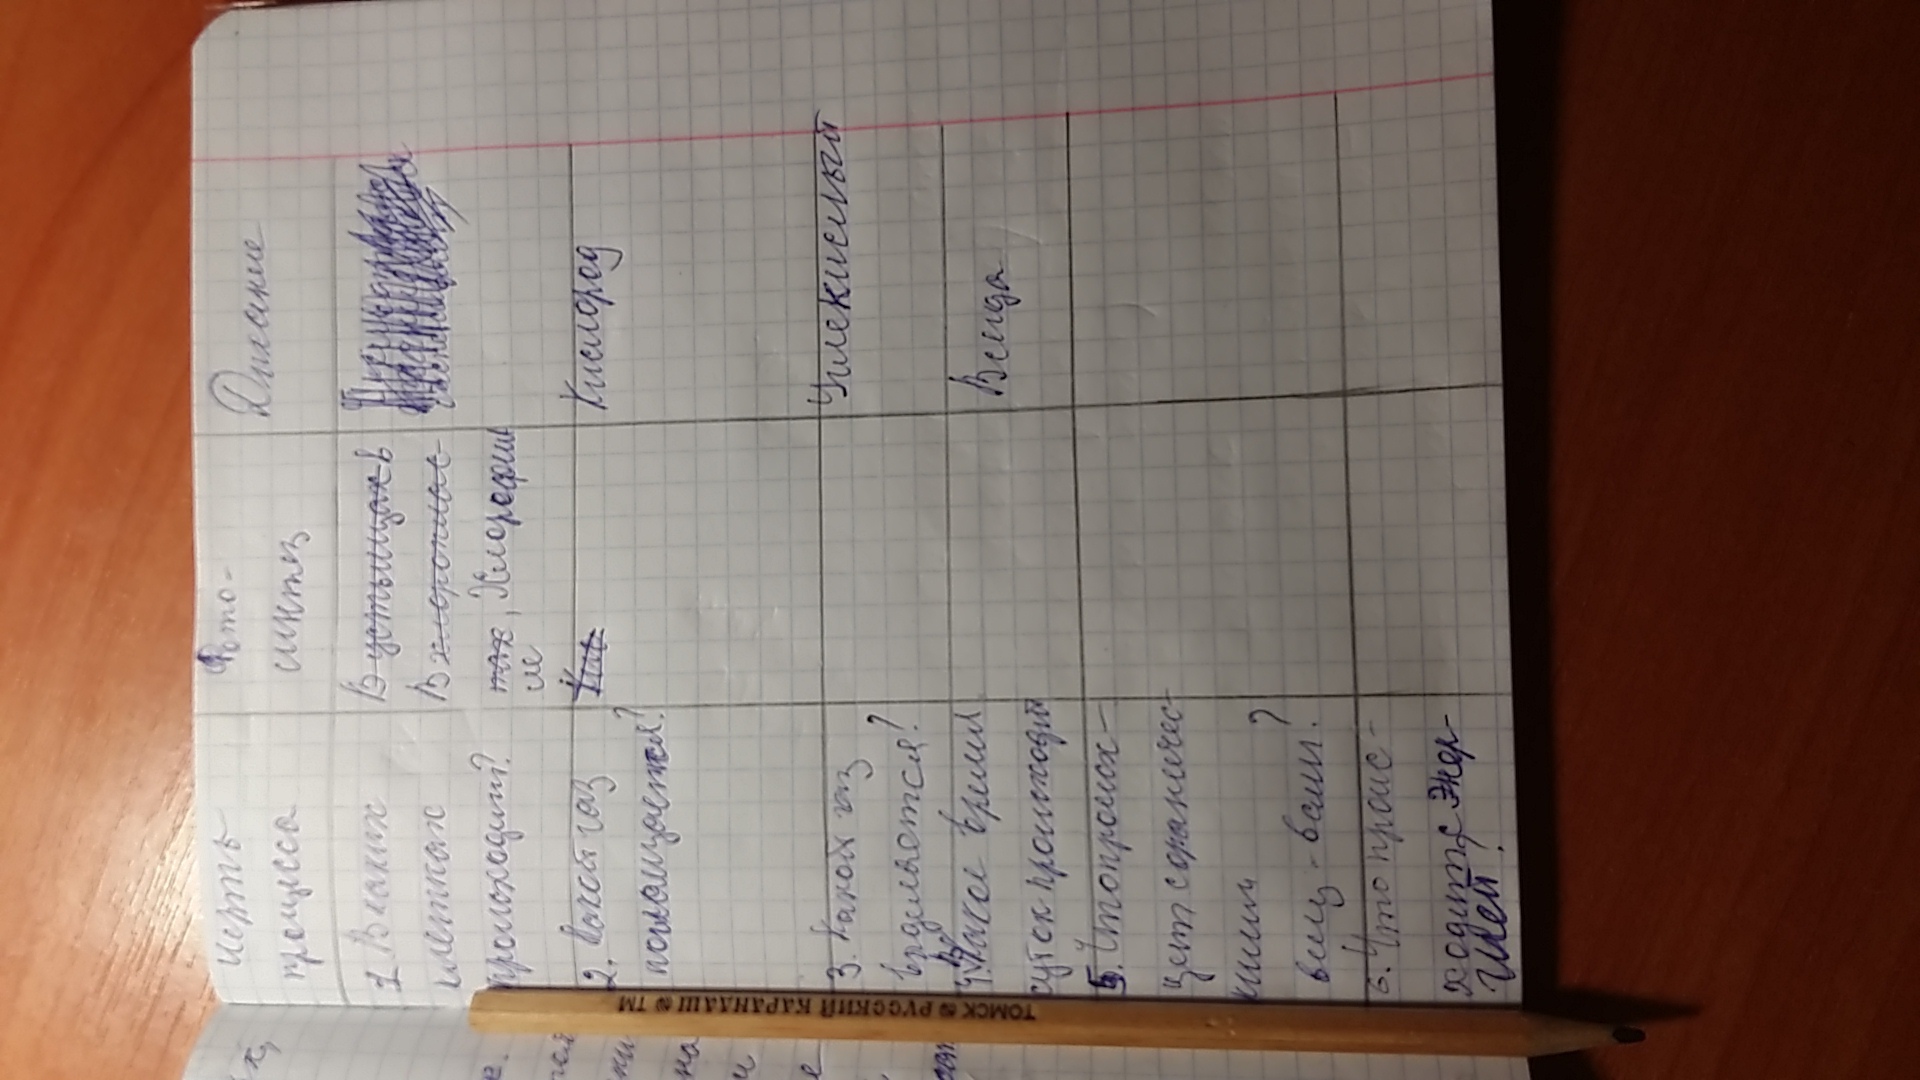 Черты
процесса
Фото-
синтез
Дыхание
1 В каких
клетках
происходит?
В устьицах в
В хлороплас-
тах, Хлорофил
ле
2. Какой газ
поглощается?
Кис
Кислород
3. Какой газ
выделяется?
Углекислый
4. В какое время
суток происходит
Всегда
5. Что происх-
цет с органичес-
кими
вещ-вами?
6. Что проис-
ходит с энер-
гией?
ТОМСК РУССКИЙ КАРАНДАШ ТМ